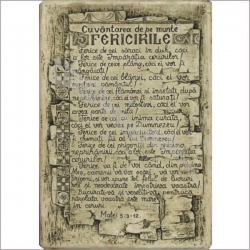 Cuvântarea de pe munte
FERICIRILE
Ferice de cei săraci în duh, căci
a lor este Împărăția cerurilor.
Ferice de ceice plâng, căci ei vor fi
mângâiați!
Ferice de cei blânzi, căci ei vor
Ferice de cei flămânzi și însetați după
căci ei vor fi săturați!
Ferice de cei milostivi, căci ei vor
Ferice de cei cu inima curată,
căci ei vor vedea pe Dumnezeu!
Ferice de cei împăciuitori, căci ei
vor fi chemați fii ai lui Dumnezeu!
Ferice de cei prigoniți din pricina
neprihănirii, căci a lor este Împărăția
cerurilor!
Ferice va fi de voi când, din pricina
Mea, oamenii vă vor ocărî, vă vor
prigoni, și vor spune tot felul de lucruri
rele și neadevărate împotriva voastră!
Bucurați-vă și veseliți-vă, pentrucă
răsplata voastră este mare
în ceruri.
Matei 5:3-12